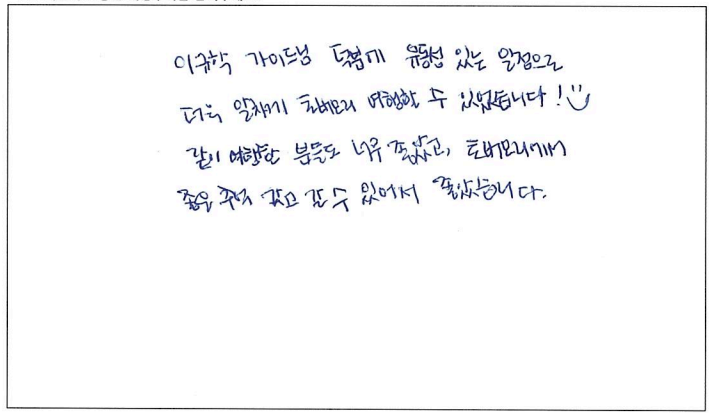 이규학 가이드님 덕분에 유동성 있는 일정으로
더욱 알차게 토버모리 여행할 수 있었습니다!
같이 여행한 분들도 너무 좋았고, 토버모리에서
좋은 추억 갖고 갈 수 있어서 좋았습니다.